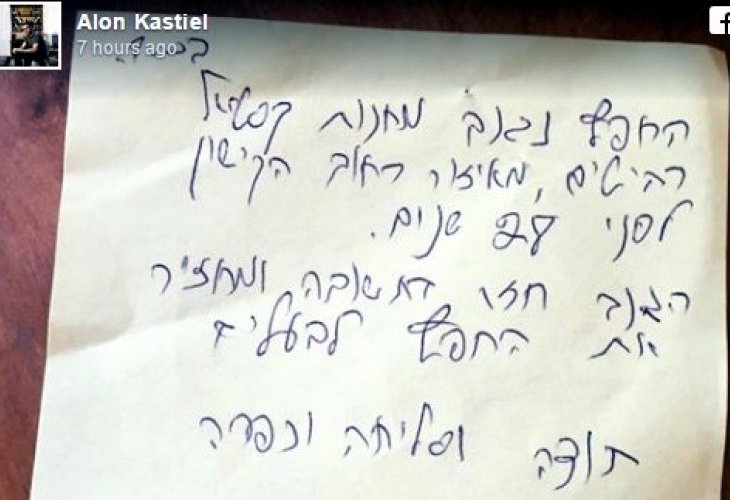 Alon Kastiel
7 hours ago
בס"ד
החפץ נגנב מחנות קסטיאל
רהיטים, מאיזור רחוב הקישון
לפני שנים.
הגנב חזר בתשובה ומחזיר
את החפץ לבעליו
תודה וסליחה וכפרה